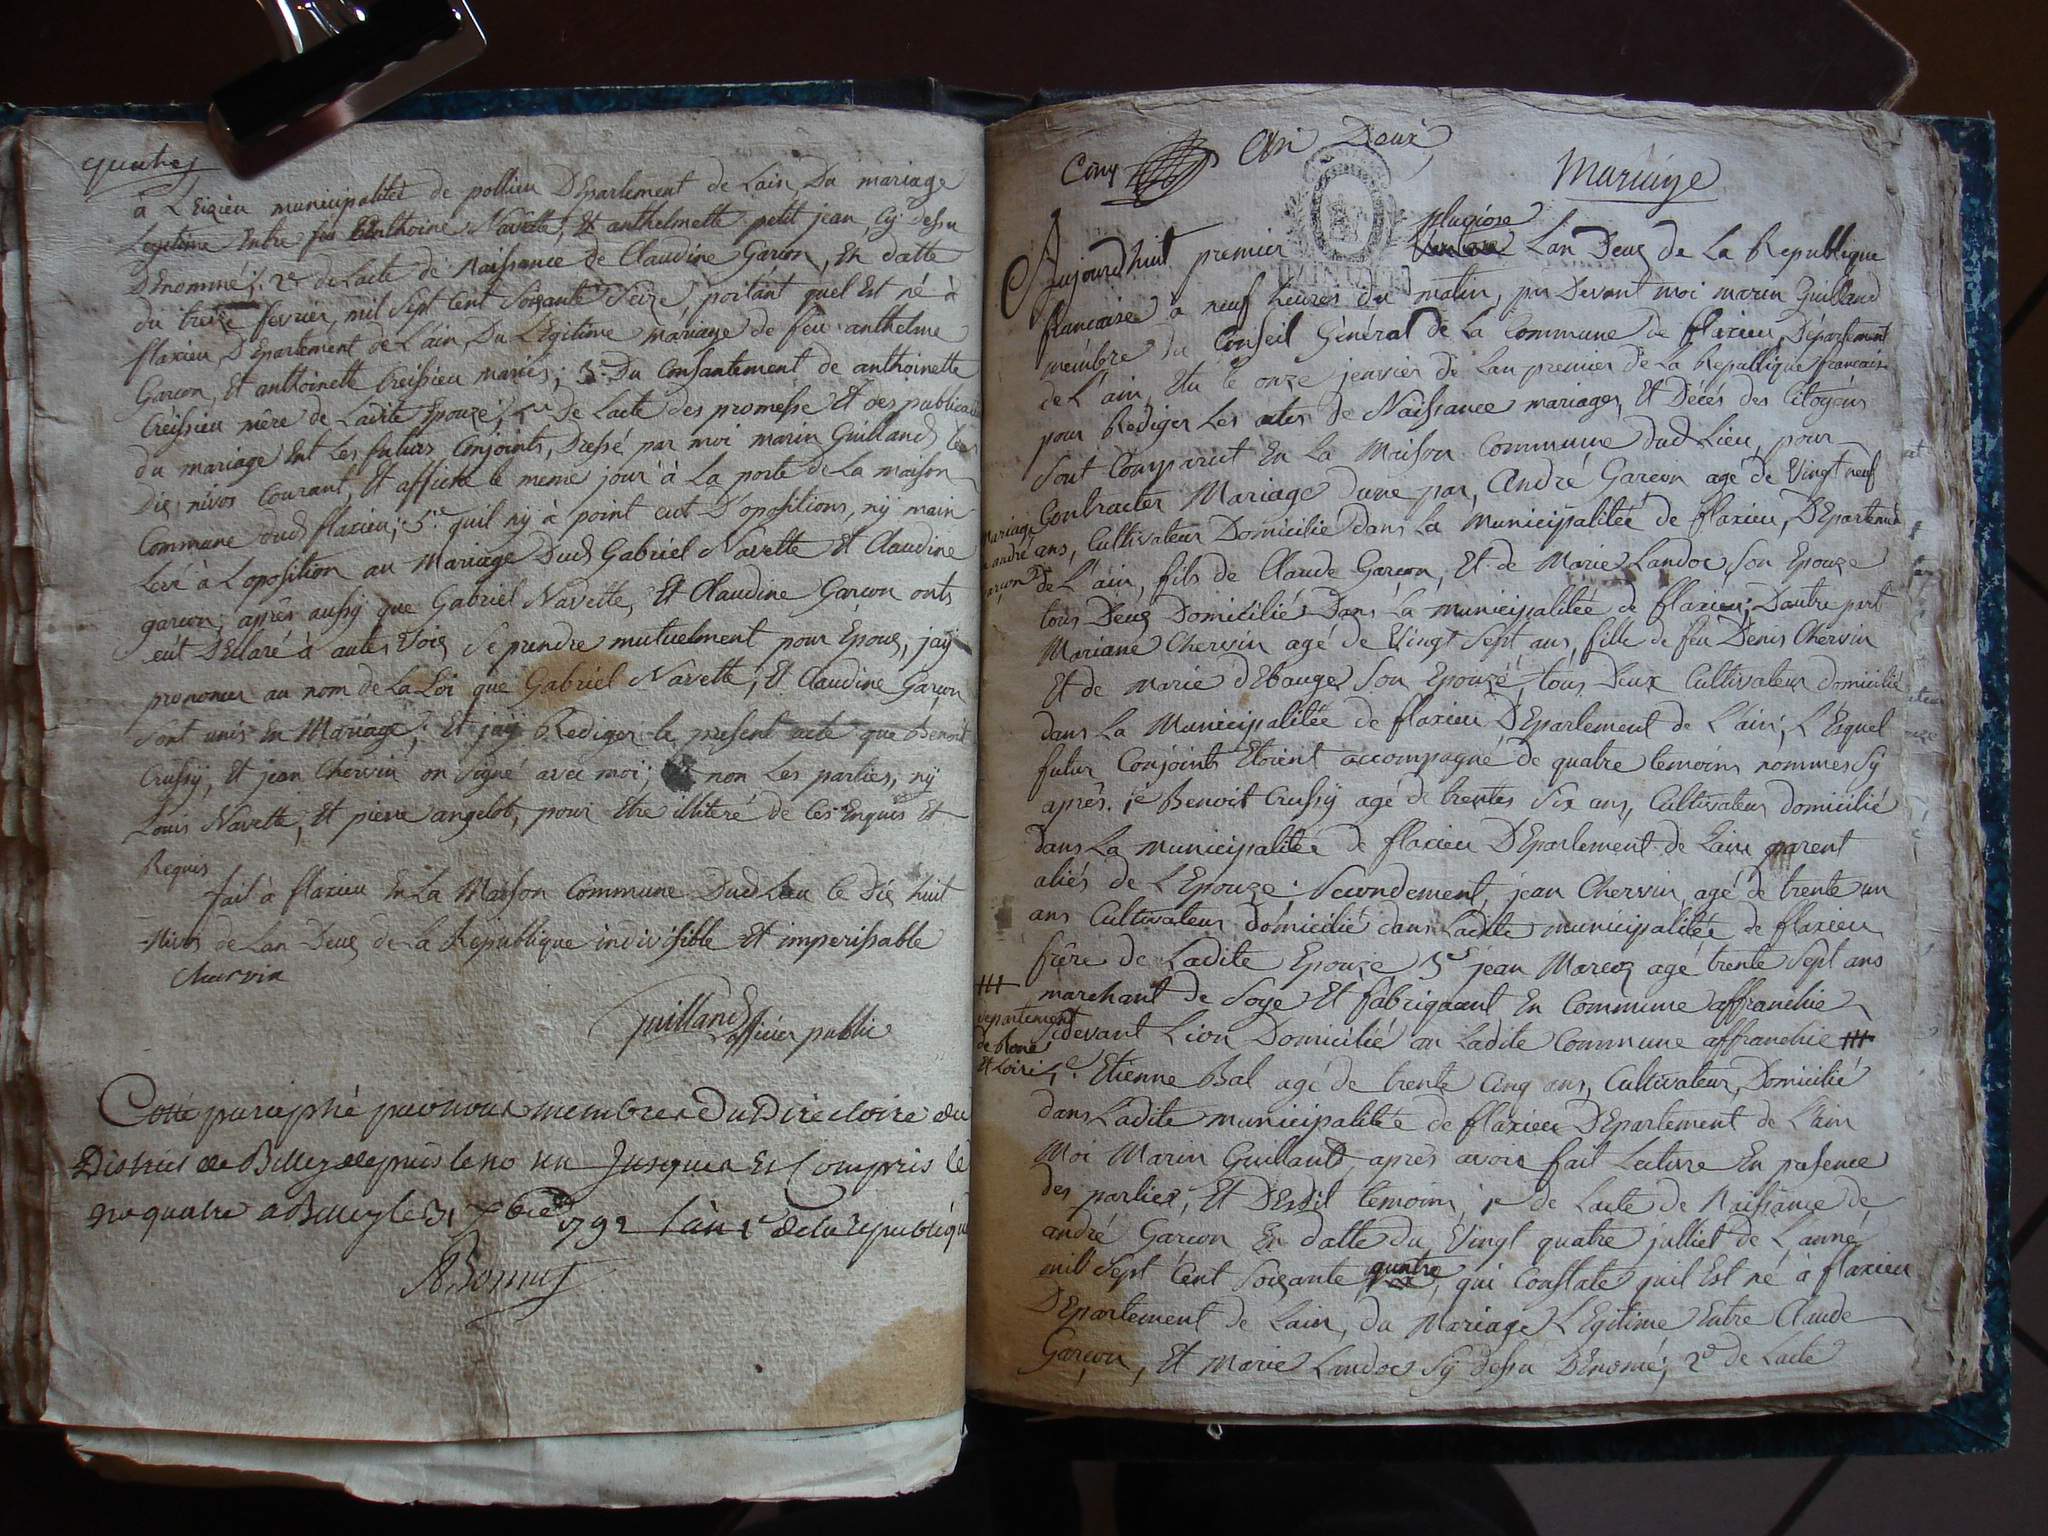 quatre
à L'Eizieu municipalité de pollieu D'Epartement de Lain, Du mariage
Legitime Entre feu Anthoine Navette, Et anthelmette petit jean, Cy Dessu
Dénommé; 2e de Lacte de Naissance de Claudine Garcon, En datte
du treize fevrier mil Sept Cent Soixante Seize, portant quel Est né à
flaxieu D'Epartement de L'ain, Du L'Egitime mariage de feu anthelme
Garcon, Et anthoinette Creissieu mariés; 3e Du Consantement de anthoinette
Creissieu mère de Ladite Epouze; 4e de Lacte des promesse Et des publicati
du mariage Ent Les futurs Conjoints, Dressé par moi marin Guilland le
Dix nivos Courant, Et affiché le meme jour à La porte de La maison
Commune dud flaxieu; 5e quil ny à point eut D'opositions, ny main
Levé à L'oposition au Mariage Dud Gabriel Navette Et Claudine
garcon; après aussy que Gabriel Navette, Et Claudine Garcon onts
eût D'Ellaré à autes Voix Se prendre mutuelment pour Epoux, jaÿ
prononcer au nom de La Loi que Gabriel Navette, Et Claudine Garcon
Sont unis En Mariage; Et jaÿ Rediger le present acte que Benoit
Crussy, Et jean Chervin on Signé avec moi; non Les parties, ny
Louis Navette, Et pierre angelot, pour Etre illiteré de Ces Enquis Et
Requis
fait à flaxieu En La Maison Commune Dud Lieu le Dix huit
Nivos de Lan Deux de La Republique indivisible Et imperissable
Charvin
Guilland
officier public
Cotté paraphé par nous membre du Directoire du
District de Belley depuis le no un Jusques Et Compris le
no quatre a Belley le 31 Xbre 1792 L'an 1e de la republiqu
Cinq
An Deux
Mariage
pluviose
Aujourdhuit premier Lan Deux de La Republique
francaise à neuf heures du matin, par Devant moi marin Guilland
membre du Conseil Général de La Commune de flaxieu Département
de L'ain, Elu le onze jenvier de Lan premier de La Republique francaise
pour Rediger Les actes de Naissance mariages, Et Décés des Citoyens
Sont Comparut En La Maison Commune dud Lieu, pour
Contracter Mariage dune par, André Garcon agé de Vingt neuf
ans, Cultivateur Domicilié dans La Municipalitée de flaxieu, D'Epartement
Mariage
andré
garcon
de L'ain, fils de Claude Garcon, Et de Marie Landoz Son Epouze
tous Deux Domiciliés Dans La municipalitée de flaxieu; D'autre part
Mariane Chervin agé de Vingt Sept ans, fille de feu Denis Chervin
Et de Marie d'Ebauge Son Epouzé, tous Deux Cultivateur domicilié
dans La Municipalitée de flaxieu D'Epartement de L'ain; L'Esquel
futur Conjoints Etoient accompagné de quatre temoins nommes Sÿ
après. 1e Benoit Crussy agé de trentes Six ans, Cultivateur domicilié
dans La municipalitée de flaxieu D'Epartement de Lain parent
aliés de L'Epouze; Secondement, jean Chervin agé de trente un
ans Cultivateur domicilié dans Ladite municipalitée de flaxieu
frère de Ladite Epouze 3e jean Marcoz agé trente Sept ans
marchant de Soye Et fabriquant En Commune affranchie
Cidevant Lion Domicilié en Ladite Commune affranchie
departement
de Rone
Et Loire
4e. Etienne Bal agé de trente Cinq ans, Cultivateur Domicilié
dans Ladite municipalitée de flaxieu D'Epartement de L'ain
Moi Marin Guilland, après avoir fait Lecture En presence
des parties, Et D'Esdit temoins; 1e de Lacte de Naissance de
andré Garcon En datte du Vingt quatre julliet de L'anné
mil Sept Cent Soixante quatre, qui Constate quil Est né à flaxieu
D'Epartement de Lain, du Mariage L'Egitime Entre Claude
Garcon, Et Marie Landoz Sÿ dessu D'Enomé; 2e de Lacte